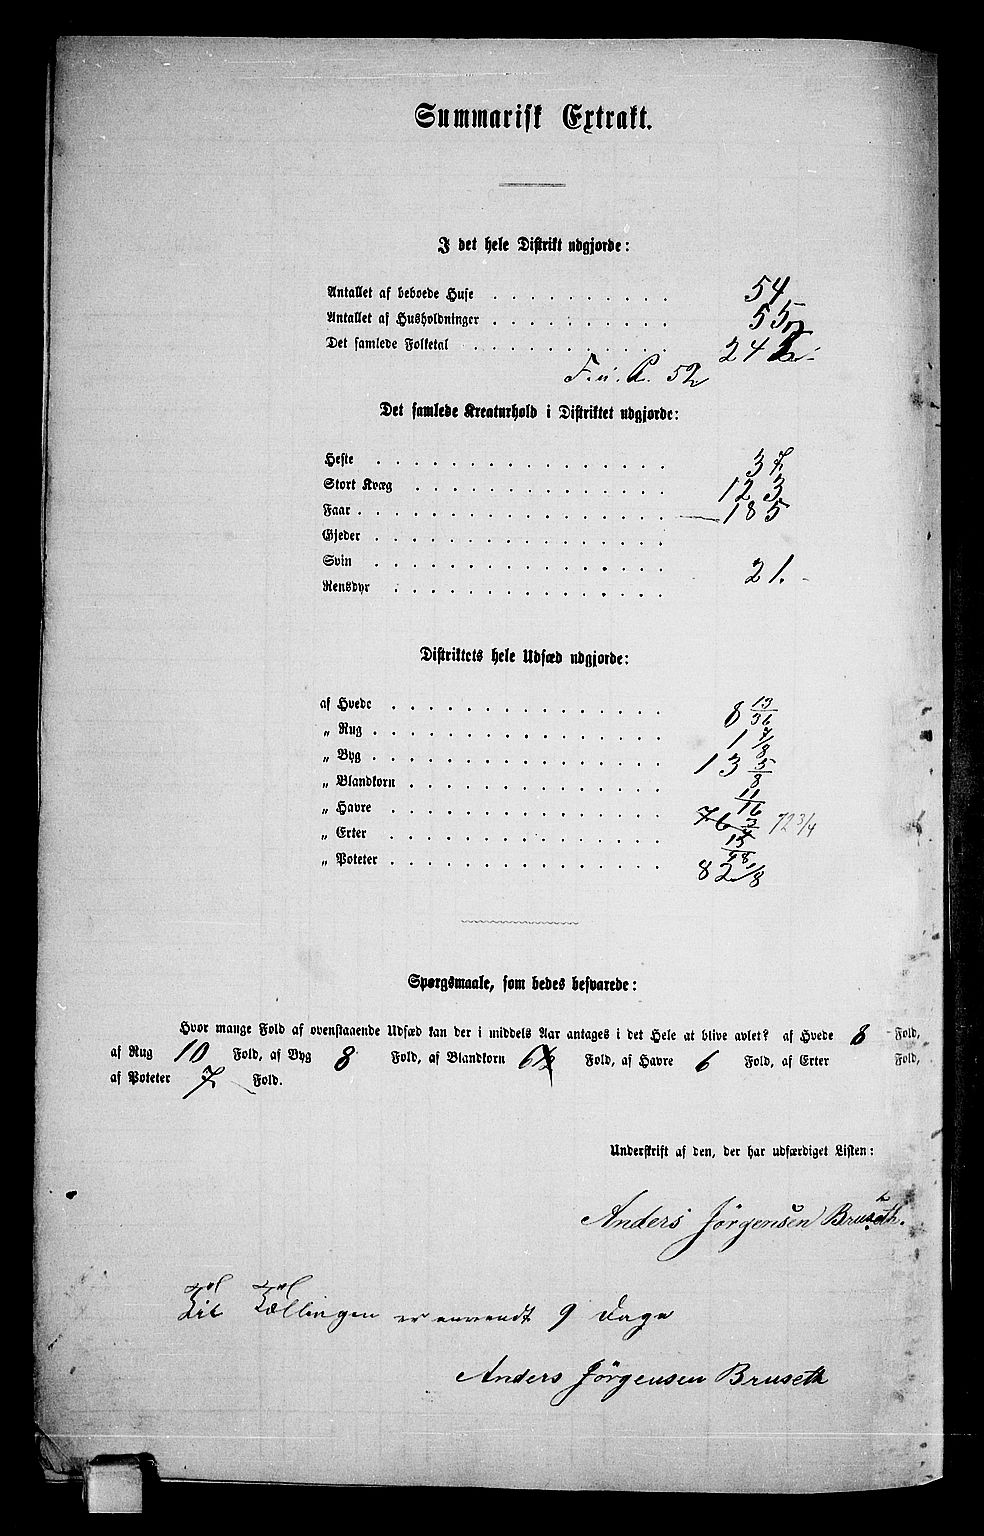 Summarisk Extrakt.
I det hele Distrikt udgjorde:
Antallet af beboede Huse 54
Antallet af Husholdninger 55
Det samlede Folketal 242
F. u. L. 52
Det samlede Kreaturhold i Distriktet udgjorde:
Heste 37
Stort Kvæg 123
Faar 185
Gjeder
Svin 21.
Rensdyr
Distriktets hele Udsæd udgjorde:
af Hvede 8 13/36
„ Rug 1 7/8
„ Byg 13 5/8
„ Blandkorn 11/16
„ Havre 76 3/4 72 3/4
„ Erter 15/48
„ Poteter 82 1/8
Spørgsmaale, som bedes besvarede:
Hvor mange Fold af ovenstaaende Udsæd kan der i middels Aar antages i det Hele at blive avlet? af Hvede 8 Fold,
af Rug 10 Fold, af Byg 8 Fold, af Blandkorn 6½ Fold, af Havre 6 Fold, af Erter Fold,
af Poteter 7 Fold.
Underskrift af den, der har udfærdiget Listen:
Anders Jörgensen Bruseth.
Til Tællingen er anvendt 9 Dage
Anders Jörgensen Bruseth